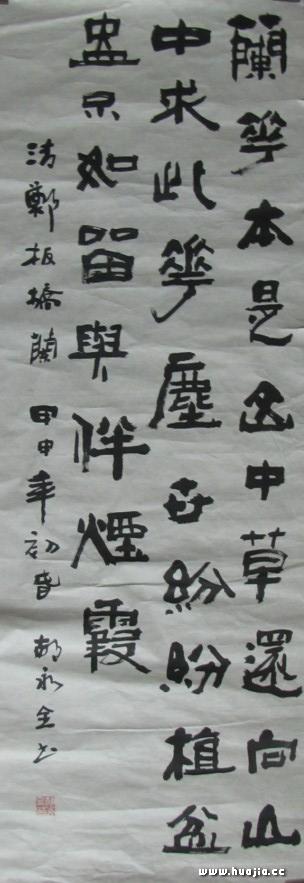 蘭華本是山中草還向山
中求此華塵世紛紛植盆
盎不如留與伴煙霞
清鄭板橋蘭 甲申年初春 永全书
www.huajia.cc